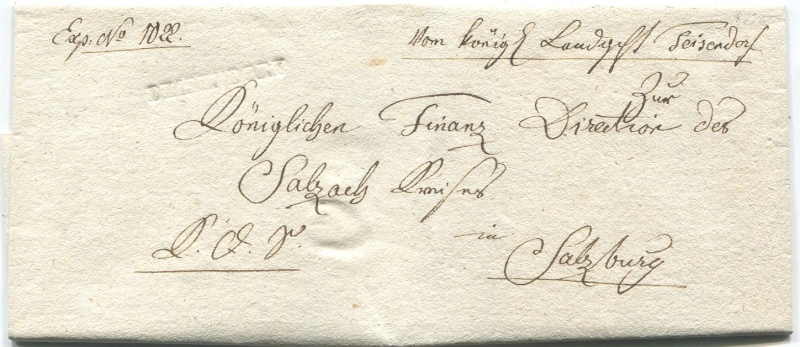 Exp. No 1022.
Vom königl Landgcht Teisendorf
Zur
Königlichen Finanz Direction des
Salzach Kreises
in
Salzburg
K. d. S.